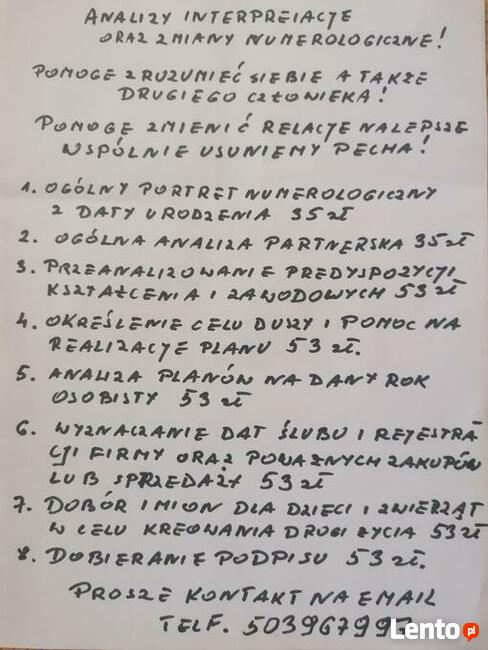 ANALIZY INTERPRETACJE
ORAZ ZMIANY NUMEROLOGICZNE!
POMOGE ZROZUMIEĆ SIEBIE A TAKŻE
DRUGIEGO CZŁOWIEKA!
POMOGE ZMIENIĆ RELACJE NALEPSZE
WSPÓLNIE USUNIEMY PECHA!
1. OGÓLNY PORTRET NUMEROLOGICZNY
Z DATY URODZENIA 35 zł
2. OGÓLNA ANALIZA PARTNERSKA 35 zł
3. PRZEANALIZOWANIE PREDYSPOZYCJI
KSZTAŁCENIA I ZAWODOWYCH 53 zł
4. OKREŚLENIE CELU DUSZY I POMOC NA
REALIZACJE PLANU 53 zł.
5. ANALIZA PLANÓW NA DANY ROK
OSOBISTY 53 zł
6. WYZNACZANIE DAT ŚLUBU I REJESTRA
CJI FIRMY ORAZ POWAŻNYCH ZAKUPÓW
LUB SPRZEDAŻY 53 zł
7. DOBÓR IMION DLA DZIECI I ZWIERZĄT
W CELU KREOWANIA DROGI ŻYCIA 53 zł
8. DOBIERANIE PODPISU 53 zł.
PROSZE KONTAKT NA EMAIL
TELF. 50396799
Lento.pl